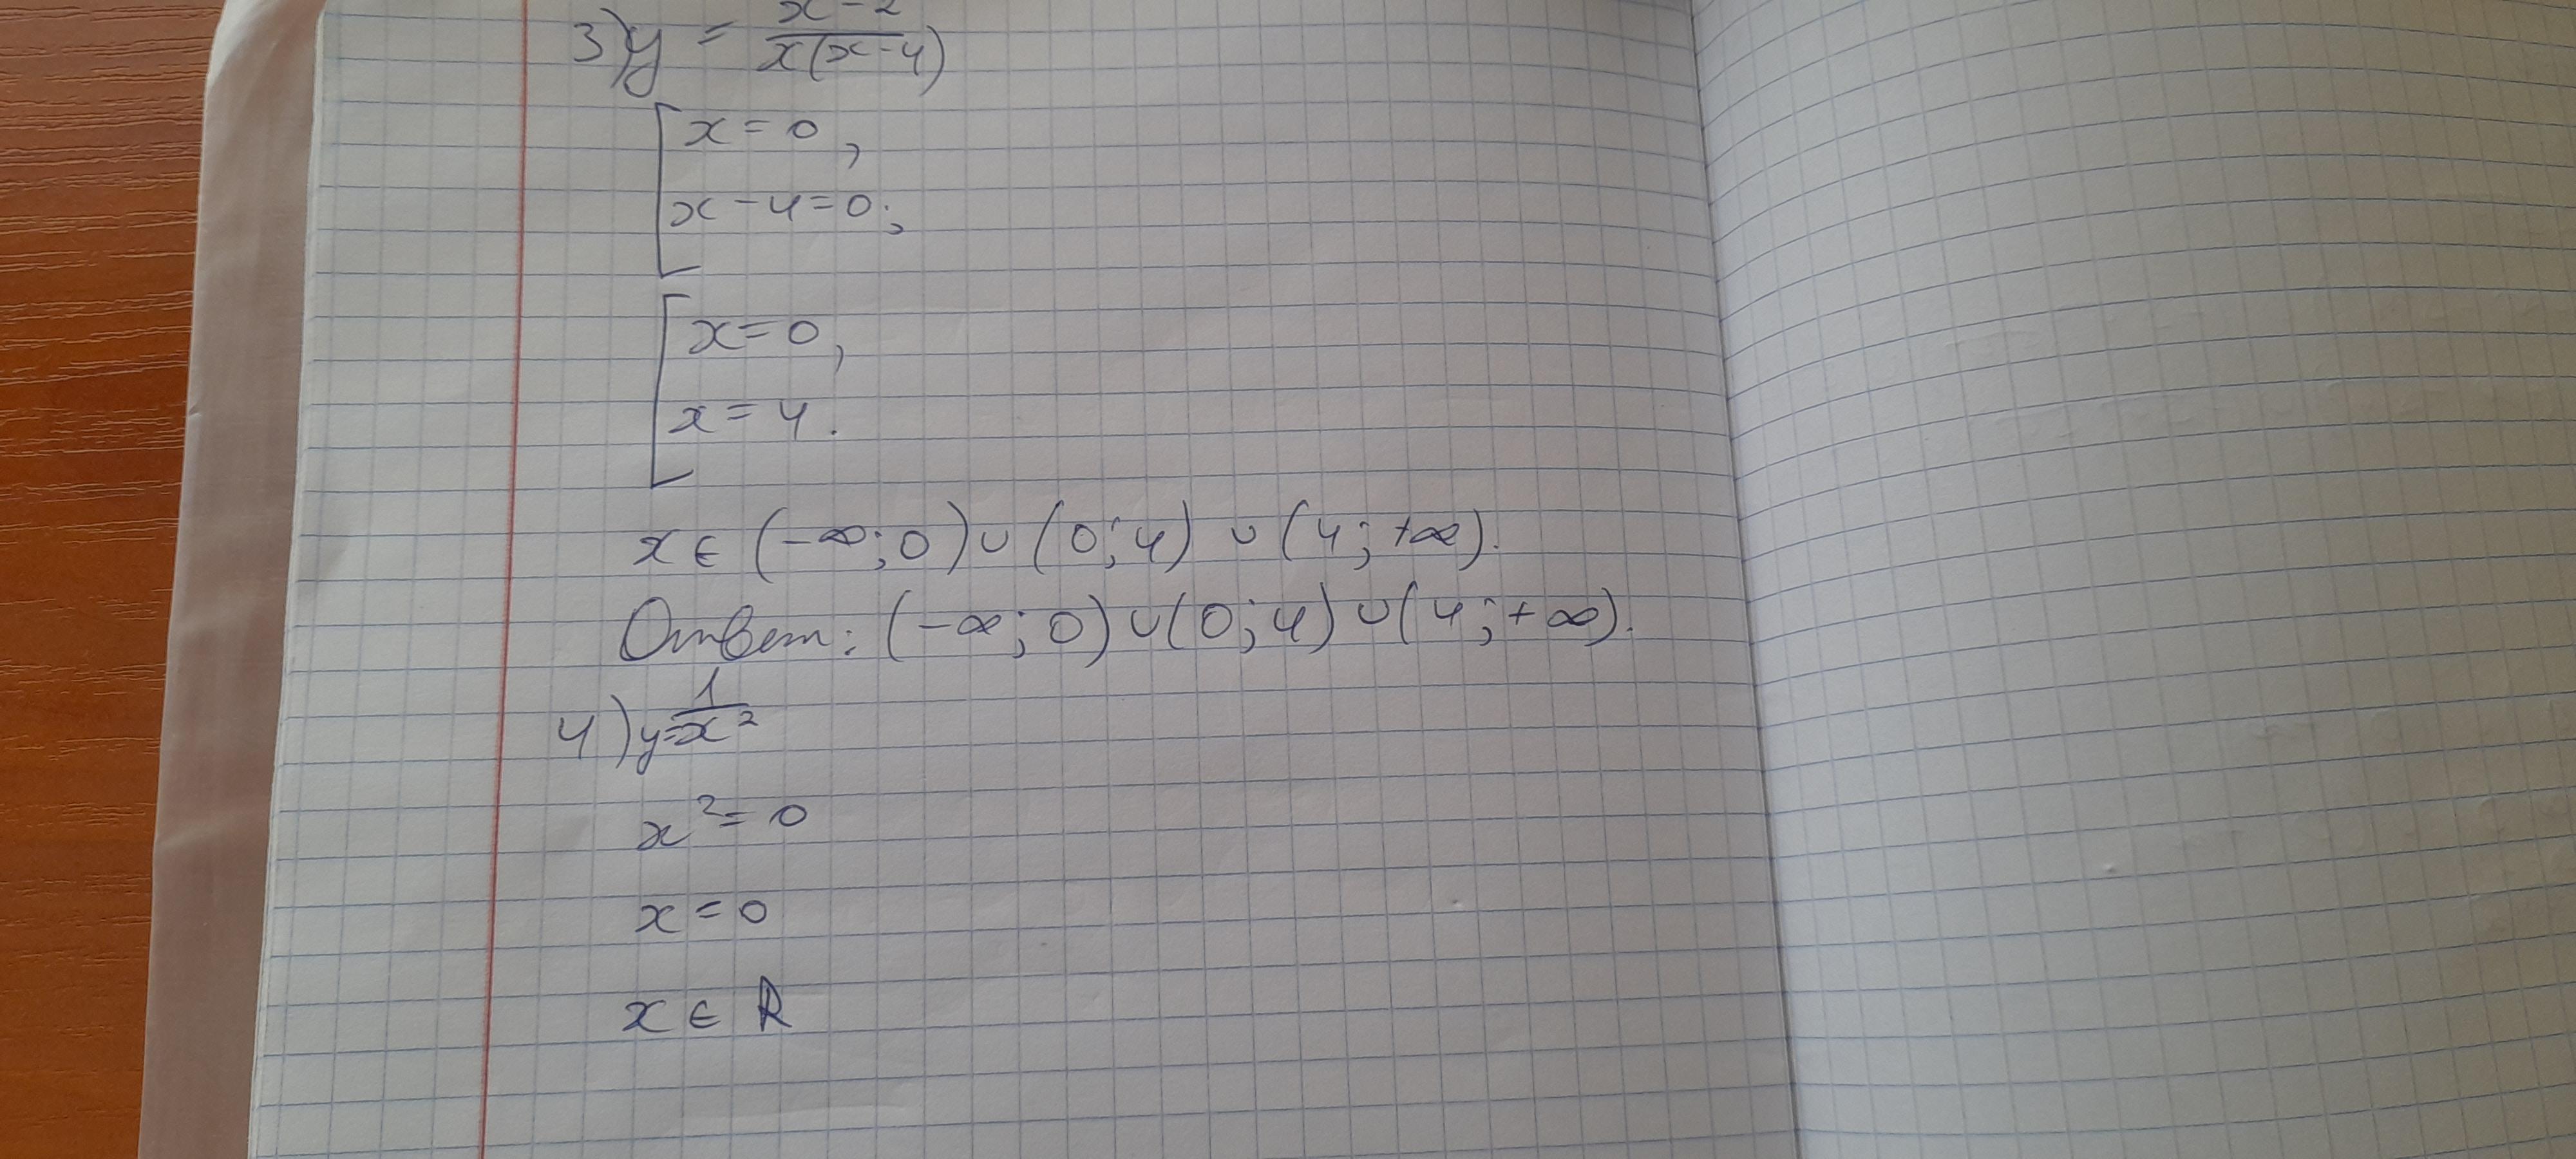 3) y = x-2 / x(x-4)
[x=0,
x-4=0;
[x=0,
x=4.
x∈(-∞;0)∪(0;4)∪(4;+∞).
Ответ: (-∞;0)∪(0;4)∪(4;+∞).
4) y=1/x²
x²=0
x=0
x∈R